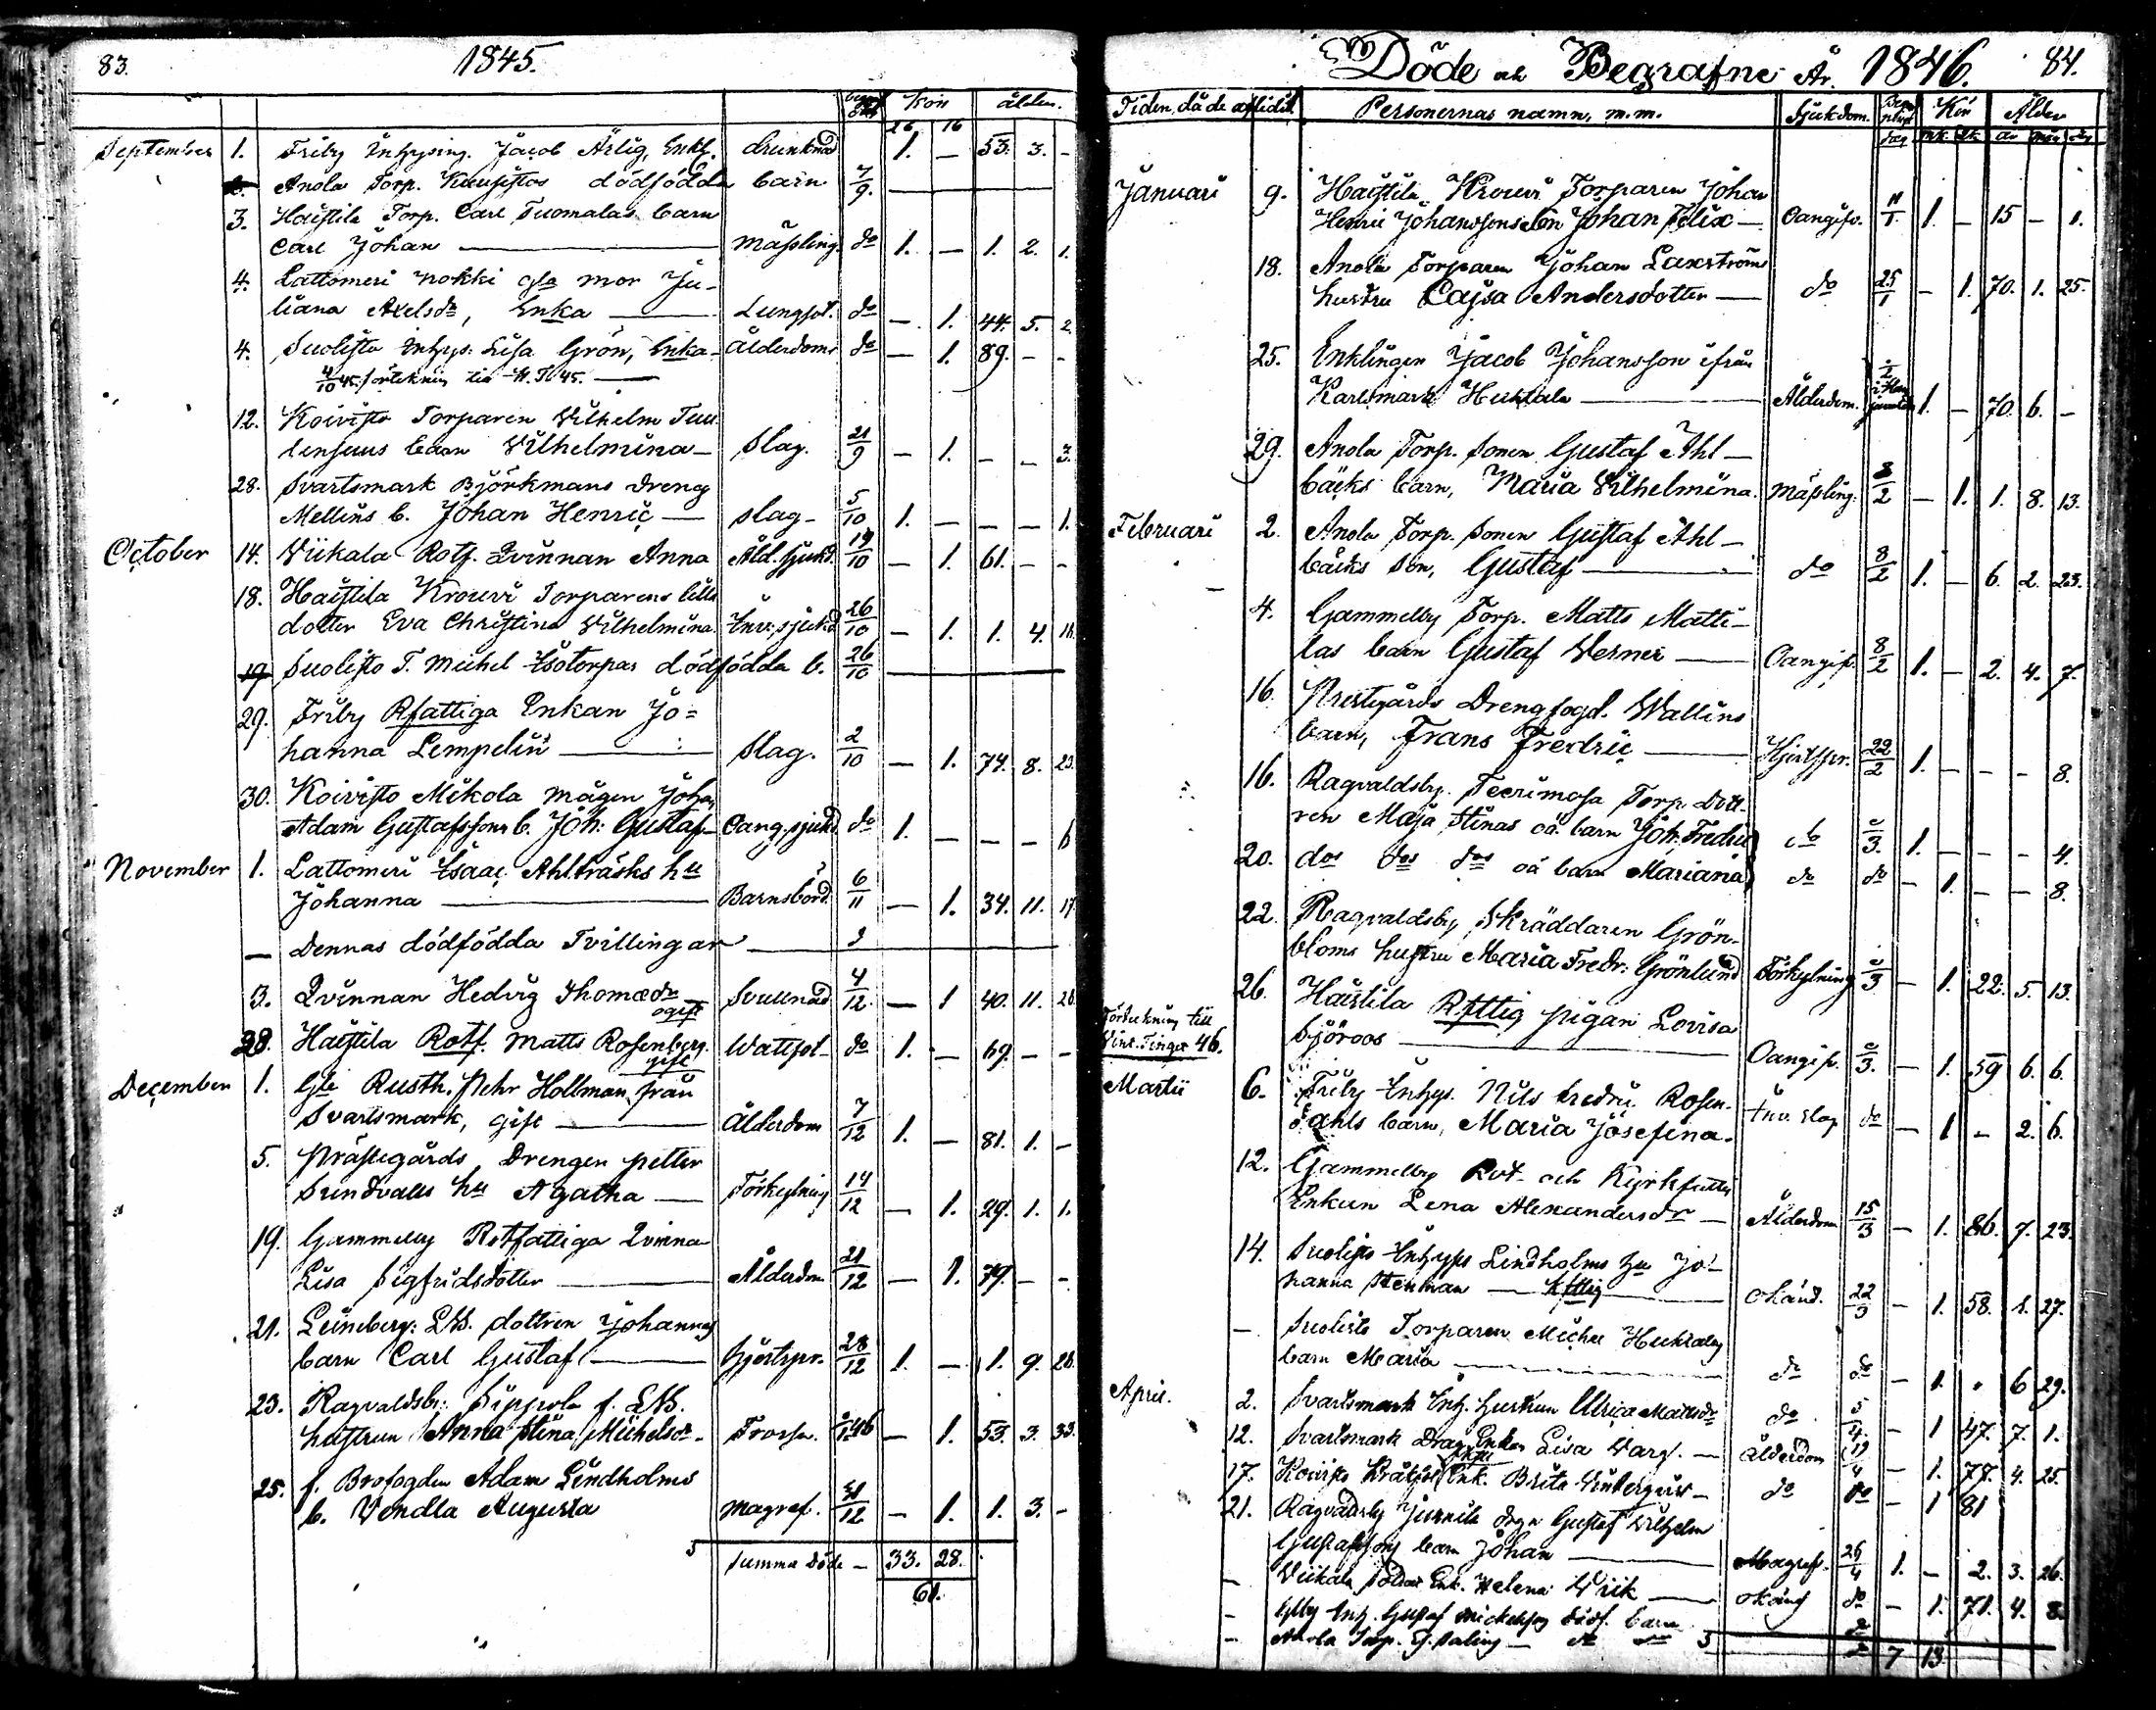 83. 1845.
begr. dag Kön ålder.
26 16
September 1. Friby Inhysing. Jacob Ärlig, Enkl. drunknad 1. — 53. 3. -
2. Anola Torp. Kuusistos dödfödda barn 7/9.
3. Haistila Torp. Carl Tuomalas barn
Carl Johan — Mässling. do 1. — 1. 2. 1.
4. Lattomeri Nokki gla mor Ju-
liana Axelsdr, Enka — Lungsot. do — 1. 44. 5. 2.
4. Suolisto Inhys. Lisa Grön, Enka — Ålderdom do — 1. 89. - -
4/10 45. förtekning till H.T. 45. —
12. Koivisto Torparen Wilhelm Tuu-
lensuus barn Wilhelmina — Slag. 21/9 — 1. — — 3.
28. Svartsmark Björkmans dreng
Mellins b. Johan Henric — slag — 5/10 1. — — — 1.
October 14. Viikala Rotf. Qvinnan Anna Åld. sjukd. 19/10 — 1. 61. - -
18. Haistila Krouvi Torparens lilla
dotter Eva Christina Wilhelmina. Inv. sjukd 26/10 — 1. 1. 4. 16.
19 Suolisto T. Michel Isotorpas dödfödda b. 26/10
29. Friby Rfattiga Enkan Jo=
hanna Lempelin — Slag. 2/10 — 1. 74. 8. 23.
30. Koivisto Mikola mågen Johan
Adam Gustafssons b. Joh: Gustaf — Oang. sjukd. do 1. — — — 6
November 1. Lattomeri Isaac Ahlträsks hu
Johanna — Barnsbörd. 6/11 — 1. 34. 11. 17.
— Dennas dödfödda Tvillingar —
3. Qvinnan Hedvig Thomædr ogift Svullnad 4/12. — 1 40. 11. 26.
28. Haistila Rotf. Matts Rosenberg. gift Wattsot — do 1. — 69. — —
December 1. Gle Rusth. Pehr Hollman från
Svartsmark, gift — Ålderdom 7/12 1. — 81. 1. —
5. Prästegårds Drengen Petter
Sundvalls hu Agatha — Förkylning 14/12 — 1. 29. 1. 1.
19. Gammelby Rotfattiga Qvinna
Lisa Sigfridsdotter — Ålderdom 21/12 — 1. 79. — -
21. Leineberg: LB. dottren Johannas
barn Carl Gustaf — hjertspr. 28/12 1. — 1. 9. 26.
23. Ragvaldsby: Sippola f. LB.
hustrun Anna Stina Michelsdr — Frossa. 1/1 46 — 1. 53. 3. 23.
25. f. Brofogden Adam Lindholms
b. Vendla Augusta Magref. 31/12 — 1. 1. 3. -
Summa Döde — 33. 28.
61.
Döde och Begrafne År 1846. 84.
Tiden, då de aflidit. Personernas namn, m.m. Sjukdom. Begrafnings dag Kön Ålder
mk. qk. år mån dag
Januari 9. Haistila Krouvi Torparen Johan
Henric Johanssons son Johan Felix — Oangifv. 11/1. 1. — 15 — 1.
18. Anola Torparen Johan Laxströms
hustru Cajsa Andersdotter — do 25/1 — 1. 70. 1. 25.
25. Enklingen Jacob Johansson ifrån
Karlsmark Huhtala — Ålderdom. 1. — 70. 6. —
29. Anola Torp. sonen Gustaf Ahl-
bäcks barn, Maria Wilhelmina. Mässling. 8/2 — 1. 1. 8. 13.
Februari 2. Anola Torp. Sonen Gustaf Ahl-
bäcks son, Gustaf — do 8/2 1. — 6. 2. 23.
4. Gammelby Torp. Matts Matti-
las barn Gustaf Verner — Oangif. 8/2 1. — 2. 4. 7.
16. Prestgårds Drengfogd. Wallins
barn, Frans Fredric — Hjertspr. 22/2 1. — — — 8.
16. Ragvaldsby. Teerimosa Torp. Dott-
ren Maja Stinas oä barn Joh. Fredric do 1/3. 1. — — — 4.
20. dos dos dos oä barn Mariana do do — 1. — — 8.
22. Ragvaldsby Skräddaren Grön-
bloms hustru Maria Fredr: Grönlund Förkylning 1/3 — 1. 22. 5. 13.
26. Haistila Rfttig pigan Lovisa
Sjöroos — Oangif. 1/3. — 1. 59 6. 6.
Förtekning till
Vint. Tinget 46.
Martii 6. Friby Inhys. Nils Fredric Rosen-
dahls barn, Maria Josefina. Inv. Slag do — 1 — 2. 6.
12. Gammelby Rot- och Kyrkfattig
Enkan Lena Alexandersdr — Ålderdom 15/3 — 1. 86. 7. 23.
14. Suolisto Inhyses Lindholms hu Jo-
hanna Stenman — Rfttig — okänd. 22/3 — 1. 58. 1. 27.
— Suolisto Torparen Michel Huhtalas
barn Maria — do do — 1. . 6 29.
April. 2. Svartsmark Inh. hustrun Ulrica Mattsdr do 5/4. — 1 47. 7. 1.
12. Svartsmark Drag. Enkan Lisa Varg. — ålderdom 19/4 — 1. 77. 4. 25.
17. Koivisto Enk. Brita — do do — 1 81
21. Ragvaldsby Junnila drgn Gustaf Wilhelm
Gustafssons barn Johan — Magref. 26/4 1. — 2. 3. 26.
— Viikala Soldat Enk. Helena Wiik — okänd do — 1. 71. 4. 8.
— Glby Inh. Gustaf Mickelsons dödf. barn
— Anola Torp. Saling — do do
7 13